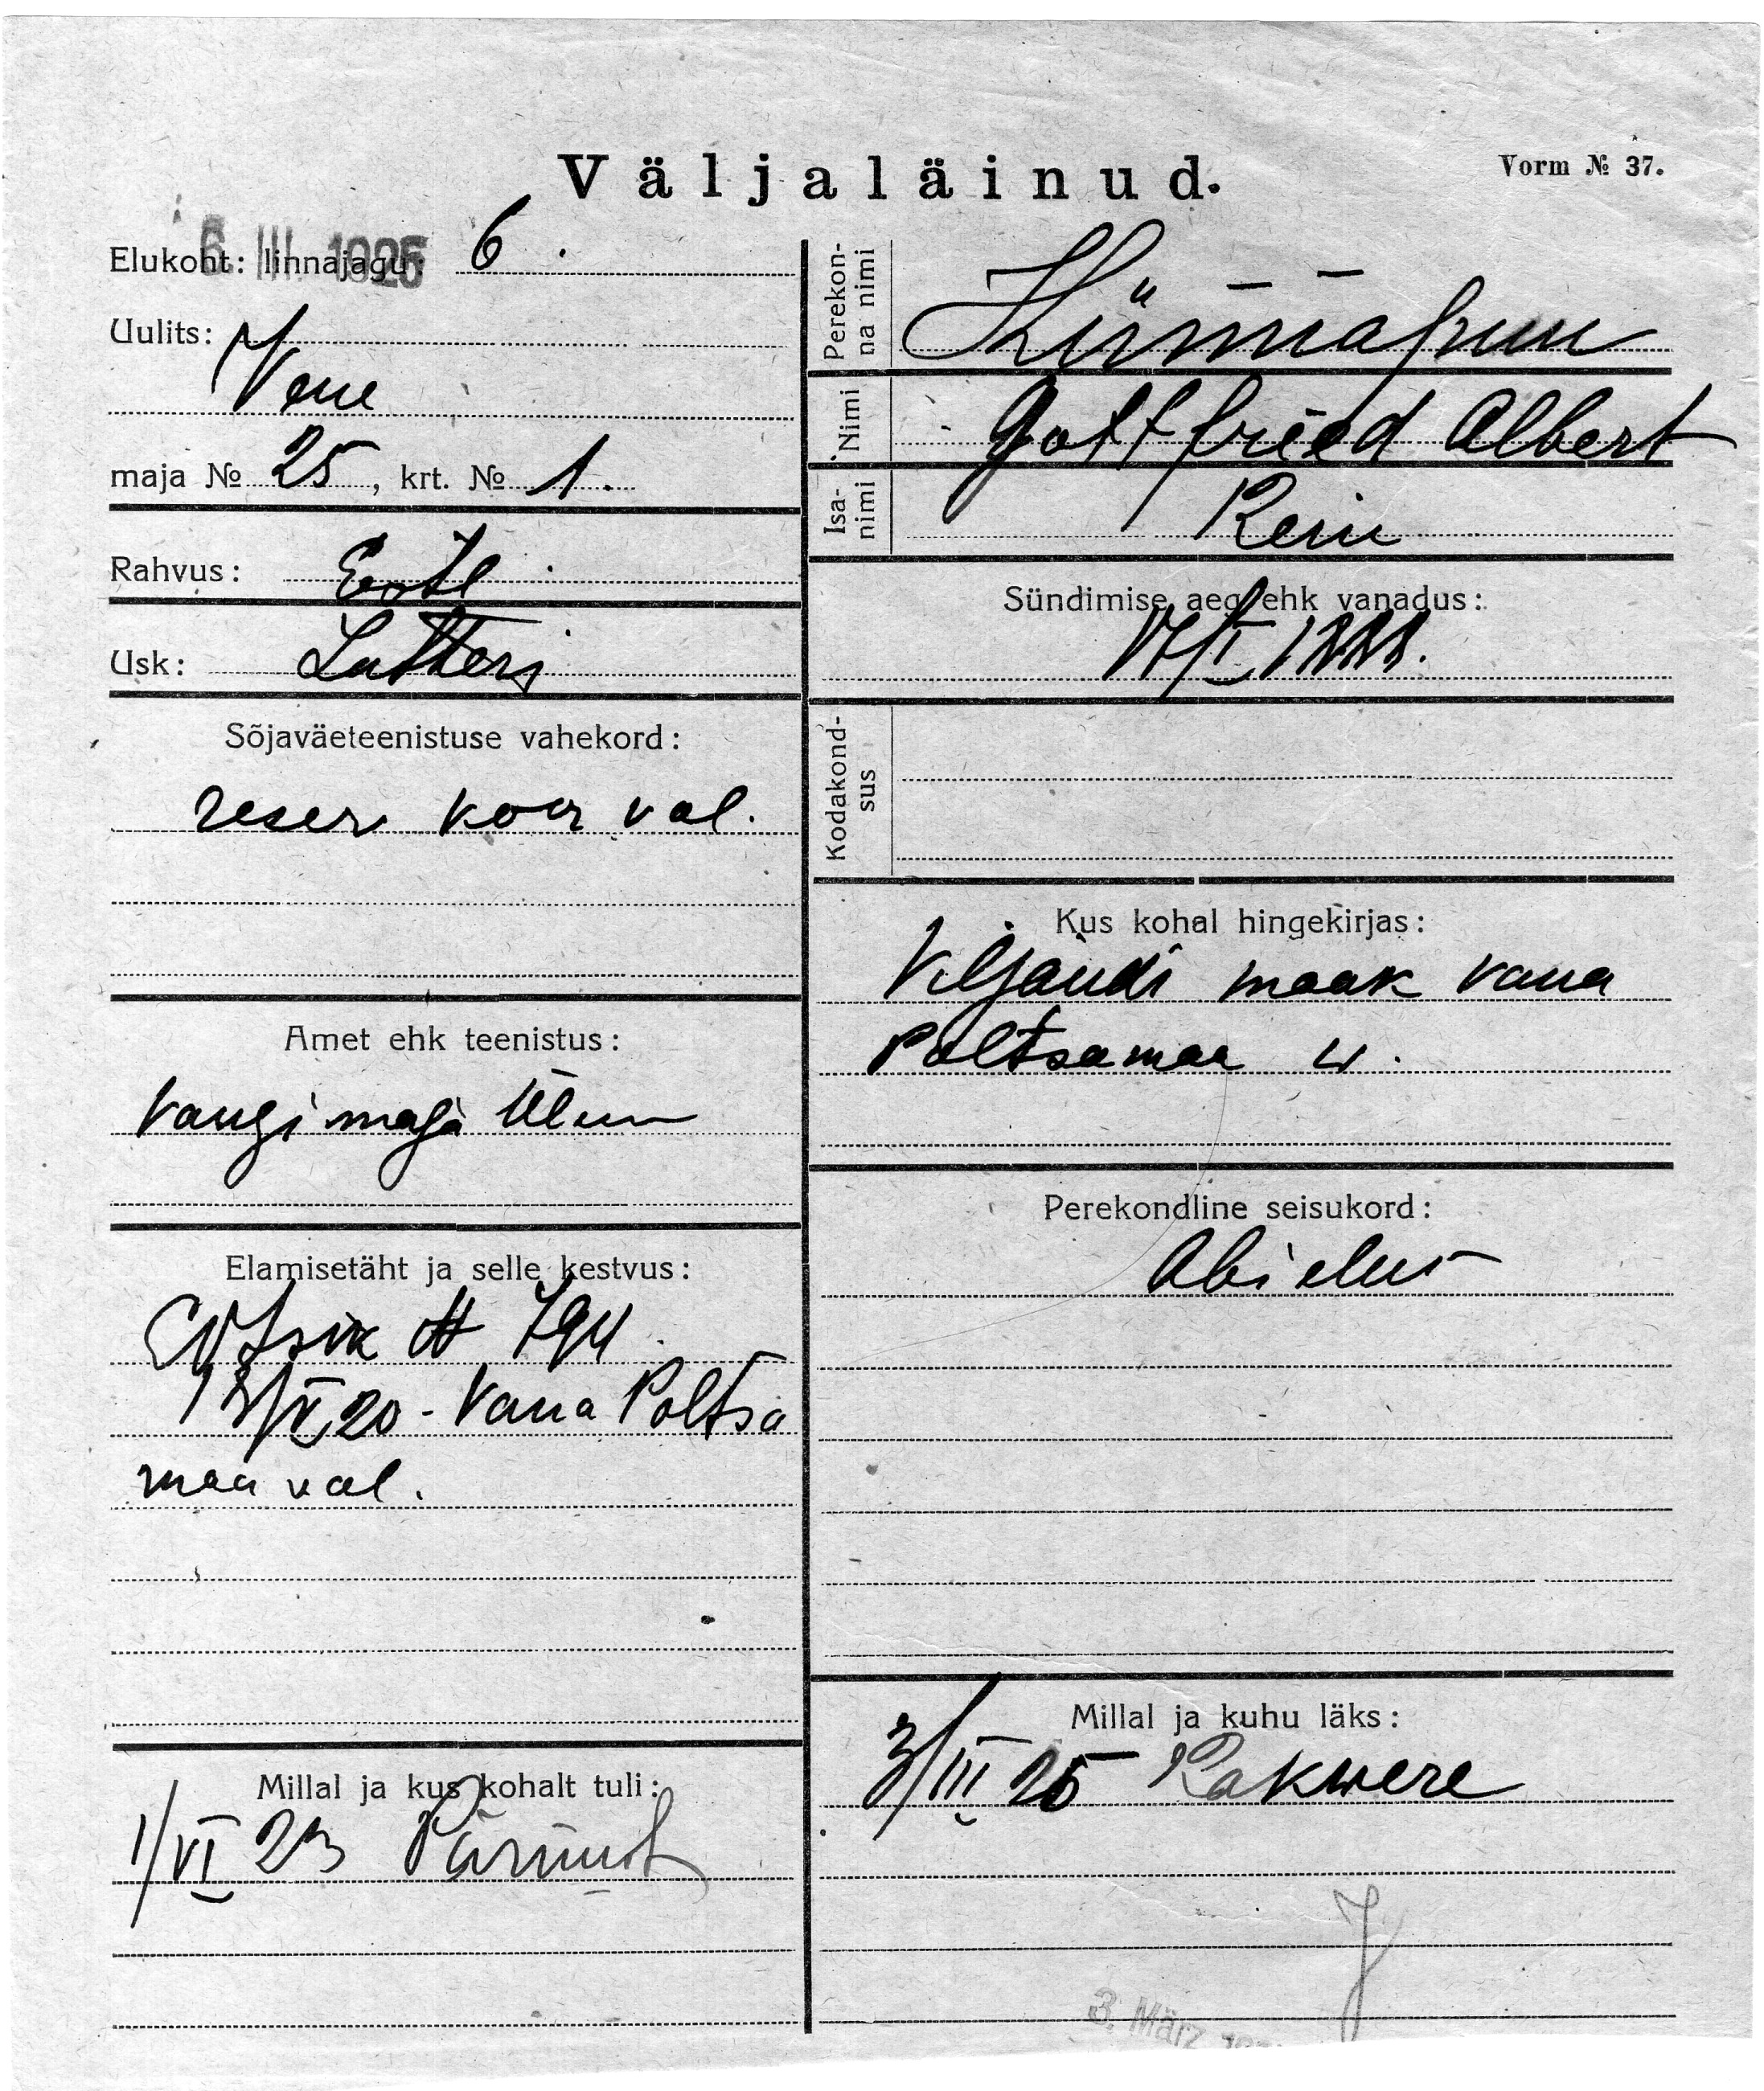 Väljaläinud.
Vorm № 37.
6. III. 1925
Elukoht: linnajagu: 6.
Uulits:
Vene
maja № 25, krt. № 1.
Rahvus: Estl
Usk: Lutteri
Sõjaväeteenistuse vahekord:
reser koer val.
Amet ehk teenistus:
Vangi maja
Elamisetäht ja selle kestvus:
794.
13/V 20 - Vana Poltsa
maa val.
Millal ja kus kohalt tuli:
1/VI 23 Pärnust
Perekon-
na nimi
Nimi Gottfried Albert
Isa-
nimi Rein
Sündimise aeg ehk vanadus:
1888.
Kodakond-
sus
Kus kohal hingekirjas:
Viljandi maak Vana
Poltsamaa w.
Perekondline seisukord:
Abielus
Millal ja kuhu läks:
3/III 25 Rakwere
3. März